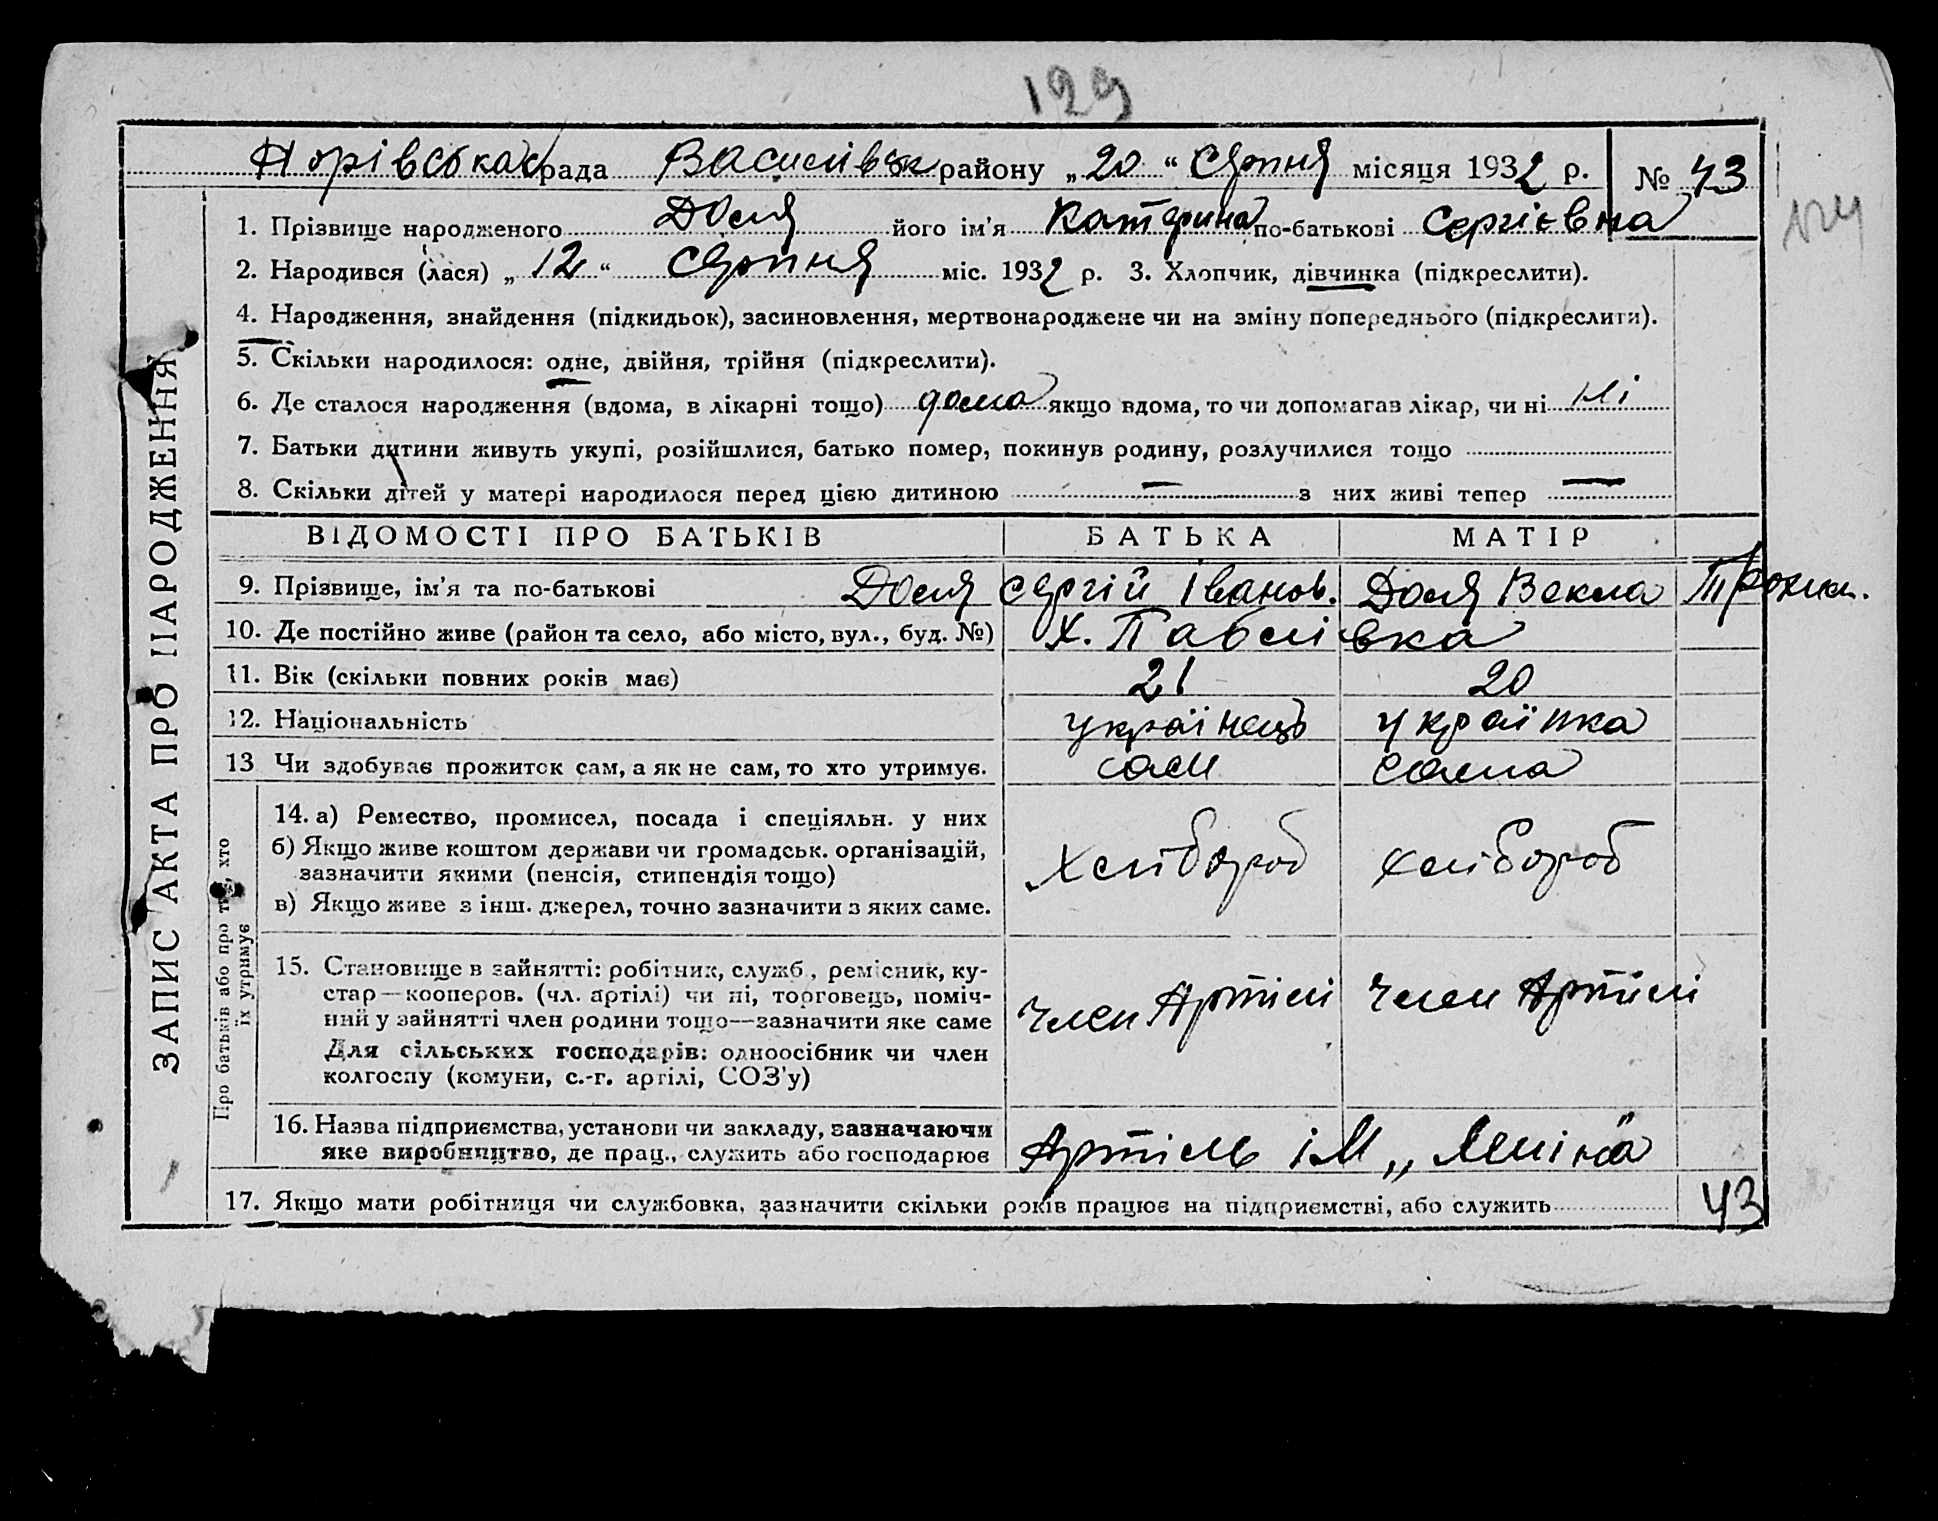 129
Норівська рада Василівськ району „20“ Серпня місяця 1932 р. № 43
124
1. Прізвище народженого Доля його ім'я Катерина по-батькові Сергієвна
2. Народився (лася) „12“ Серпня міс. 1932 р. 3. Хлопчик, дівчинка (підкреслити).
4. Народження, знайдення (підкидьок), засиновлення, мертвонароджене чи на зміну попереднього (підкреслити).
5. Скільки народилося: одне, двійня, трійня (підкреслити).
6. Де сталося народження (вдома, в лікарні тощо) дома якщо вдома, то чи допомагав лікар, чи ні Ні
7. Батьки дитини живуть укупі, розійшлися, батько помер, покинув родину, розлучилися тощо
8. Скільки дітей у матері народилося перед цією дитиною — з них живі тепер —
ЗАПИС АКТА ПРО НАРОДЖЕННЯ
ВІДОМОСТІ ПРО БАТЬКІВ БАТЬКА МАТІР
9. Прізвище, ім'я та по-батькові Доля Сергій Іванов. Доля Векла Трохим.
10. Де постійно живе (район та село, або місто, вул., буд. №) Х. Павлівка
11. Вік (скільки повних років має) 21 20
12. Національність українець українка
13 Чи здобуває прожиток сам, а як не сам, то хто утримує. сам сама
Про батьків або про тих, хто їх утримує
14. а) Ремество, промисел, посада і спеціяльн. у них
б) Якщо живе коштом держави чи громадськ. організацій,
зазначити якими (пенсія, стипендія тощо) Хлібороб хлібороб
в) Якщо живе з інш. джерел, точно зазначити з яких саме.
15. Становище в зайнятті: робітник, служб., ремісник, ку-
стар—кооперов. (чл. артілі) чи ні, торговець, поміч-
ний у зайнятті член родини тощо—зазначити яке саме Член Артілі Член Артілі
Для сільських господарів: одноосібник чи член
колгоспу (комуни, с.-г. артілі, СОЗ'у)
16. Назва підприємства, установи чи закладу, зазначаючи
яке виробництво, де прац., служить або господарює Артіль ім „Леніна"
17. Якщо мати робітниця чи службовка, зазначити скільки років працює на підприємстві, або служить 43